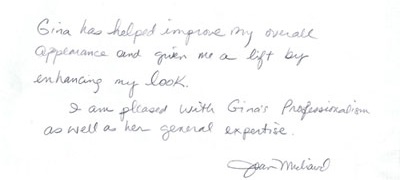 Gina has helped improve my overall
appearance and given me a lift by
enhancing my look.
I am pleased with Gina's Professionalism
as well as her general expertise.
Joan